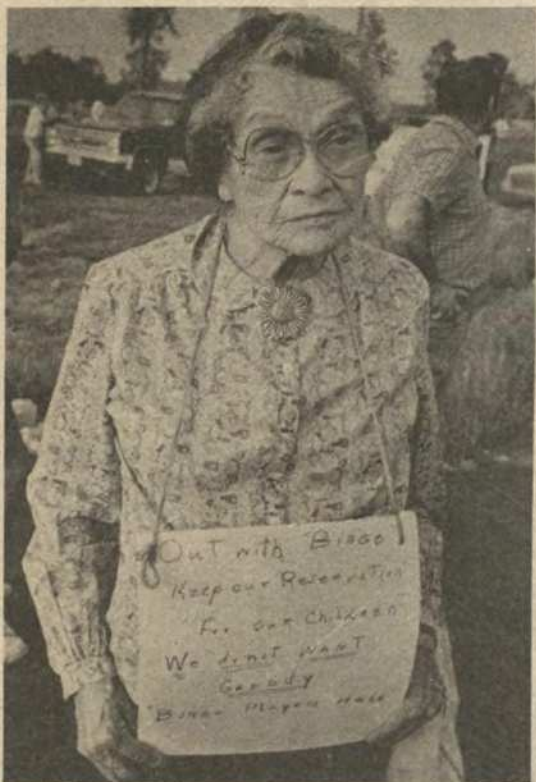 Out with Bingo
Keep our Reservation
For our Children
We do not want
Greedy
Bingo Players Here